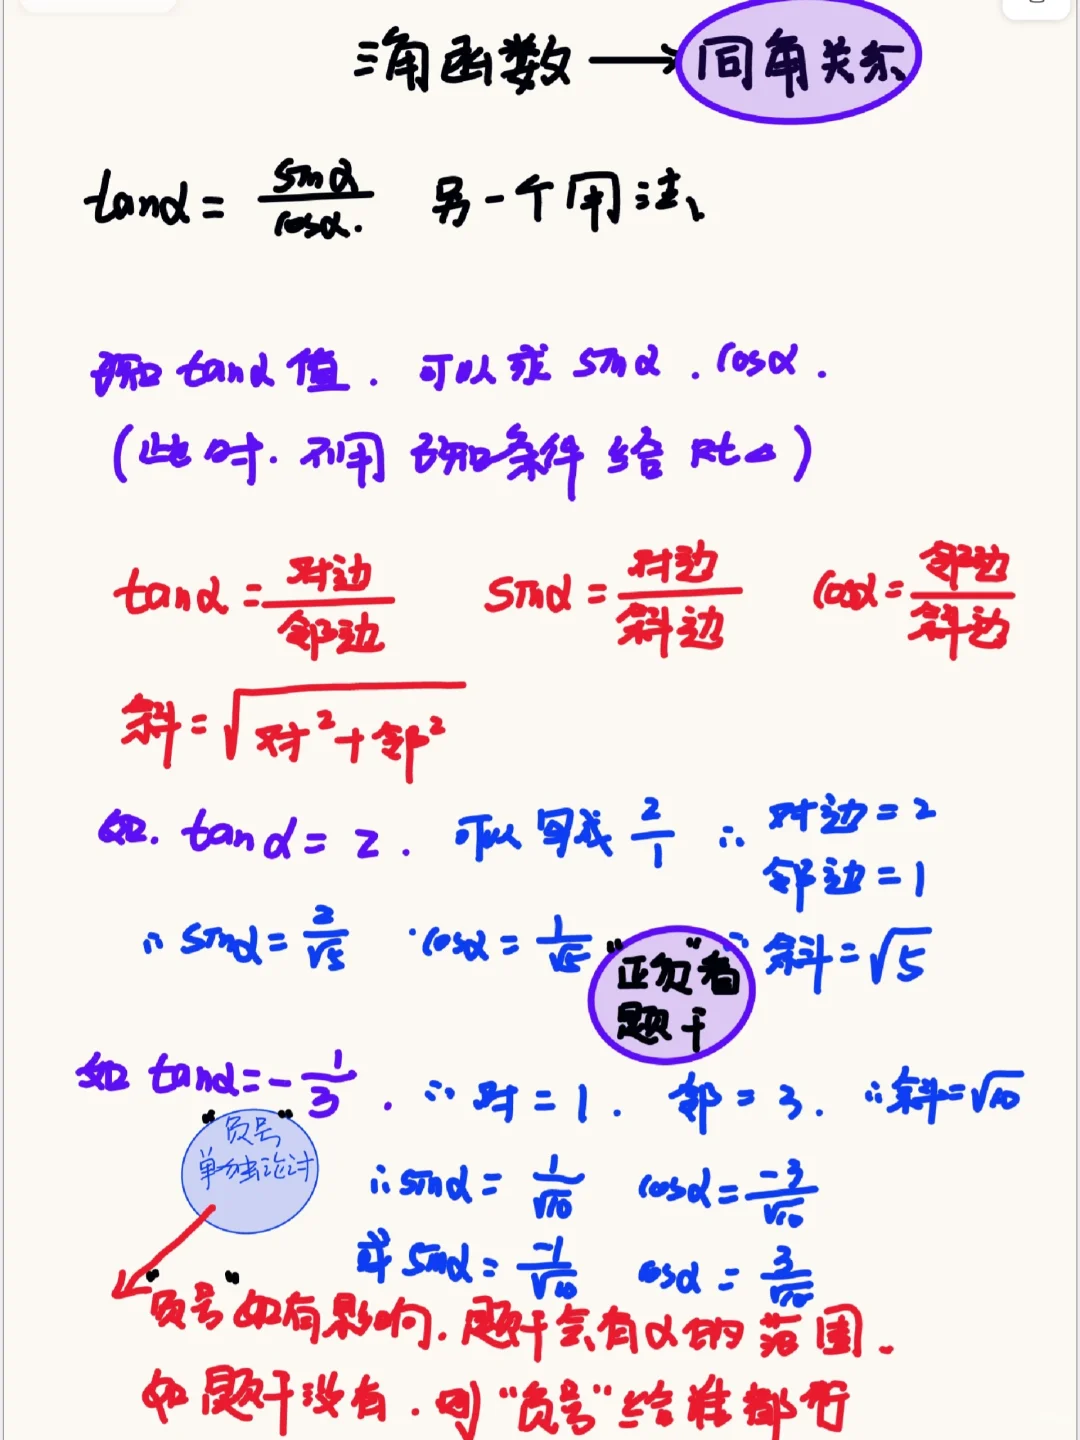 三角函数 → 同角关系
tanα = sinα/cosα. 另一个用法
已知 tanα 值. 可以求 sinα. cosα.
(此时. 利用已知条件给 Rt△)
tanα = 对边/邻边 sinα = 对边/斜边 cosα = 邻边/斜边
斜 = √(对²+邻²)
如. tanα = 2. 可以写成 2/1 ∴ 对边 = 2
邻边 = 1
∴ sinα = 2/√5 cosα = 1/√5 ∵ 斜 = √5
"正负看"
题干
如 tanα = -1/3. ∵ 对 = 1. 邻 = 3. ∴ 斜 = √10
"负号"
单独讨论
∴ sinα = 1/√10 cosα = -3/√10
或 sinα = -1/√10 cosα = 3/√10
"负号"如有影响. 题干会有α的范围.
如题干没有. 则"负号"给谁都行